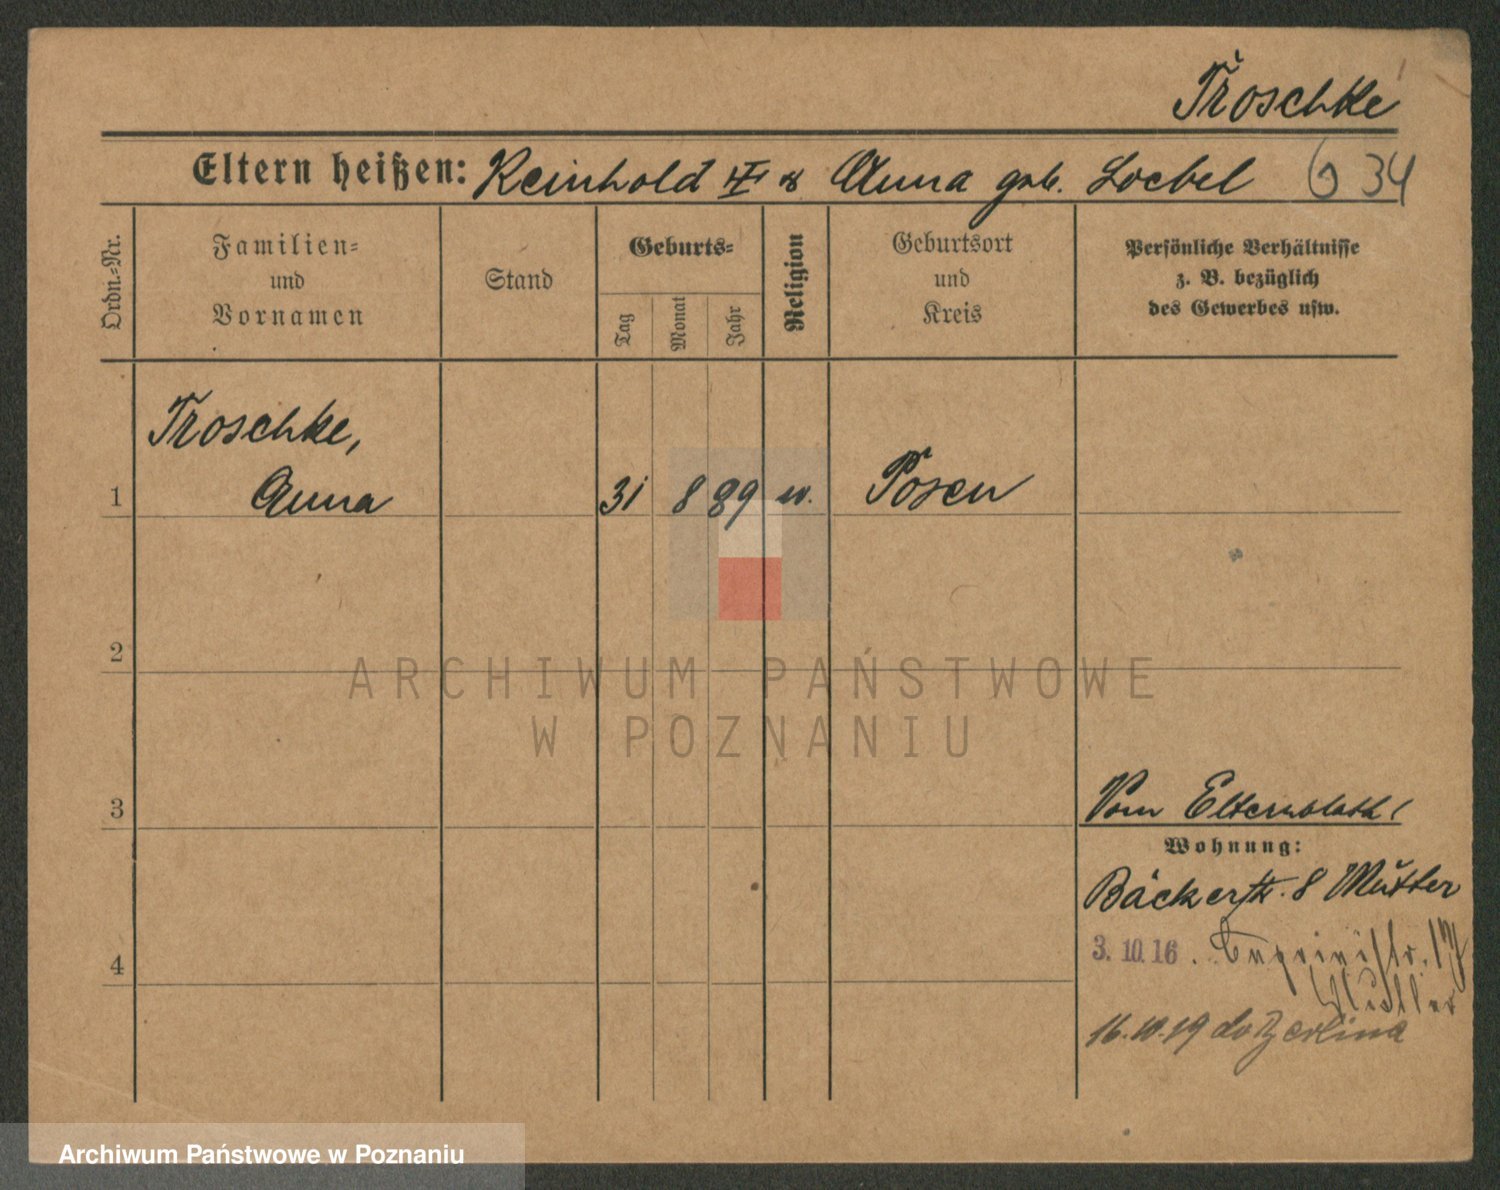 Troschke
Eltern heißen: Reinhold & Anna geb. Loebel 34
Ordn.=Nr.
Familien=
und
Vornamen
Stand
Geburts=
Tag
Monat
Jahr
Religion
Geburtsort
und
Kreis
Persönliche Verhältnisse
z. B. bezüglich
des Gewerbes usw.
Troschke,
1 Anna 31 8 89 Posen
2
3
Vom Elternblatt!
Wohnung:
Bäckerstr. 8 Mutter
4
3. 10. 16. 17
Mutter
16.10.19 do Berlina
ARCHIWUM PAŃSTWOWE
W POZNANIU
Archiwum Państwowe w Poznaniu